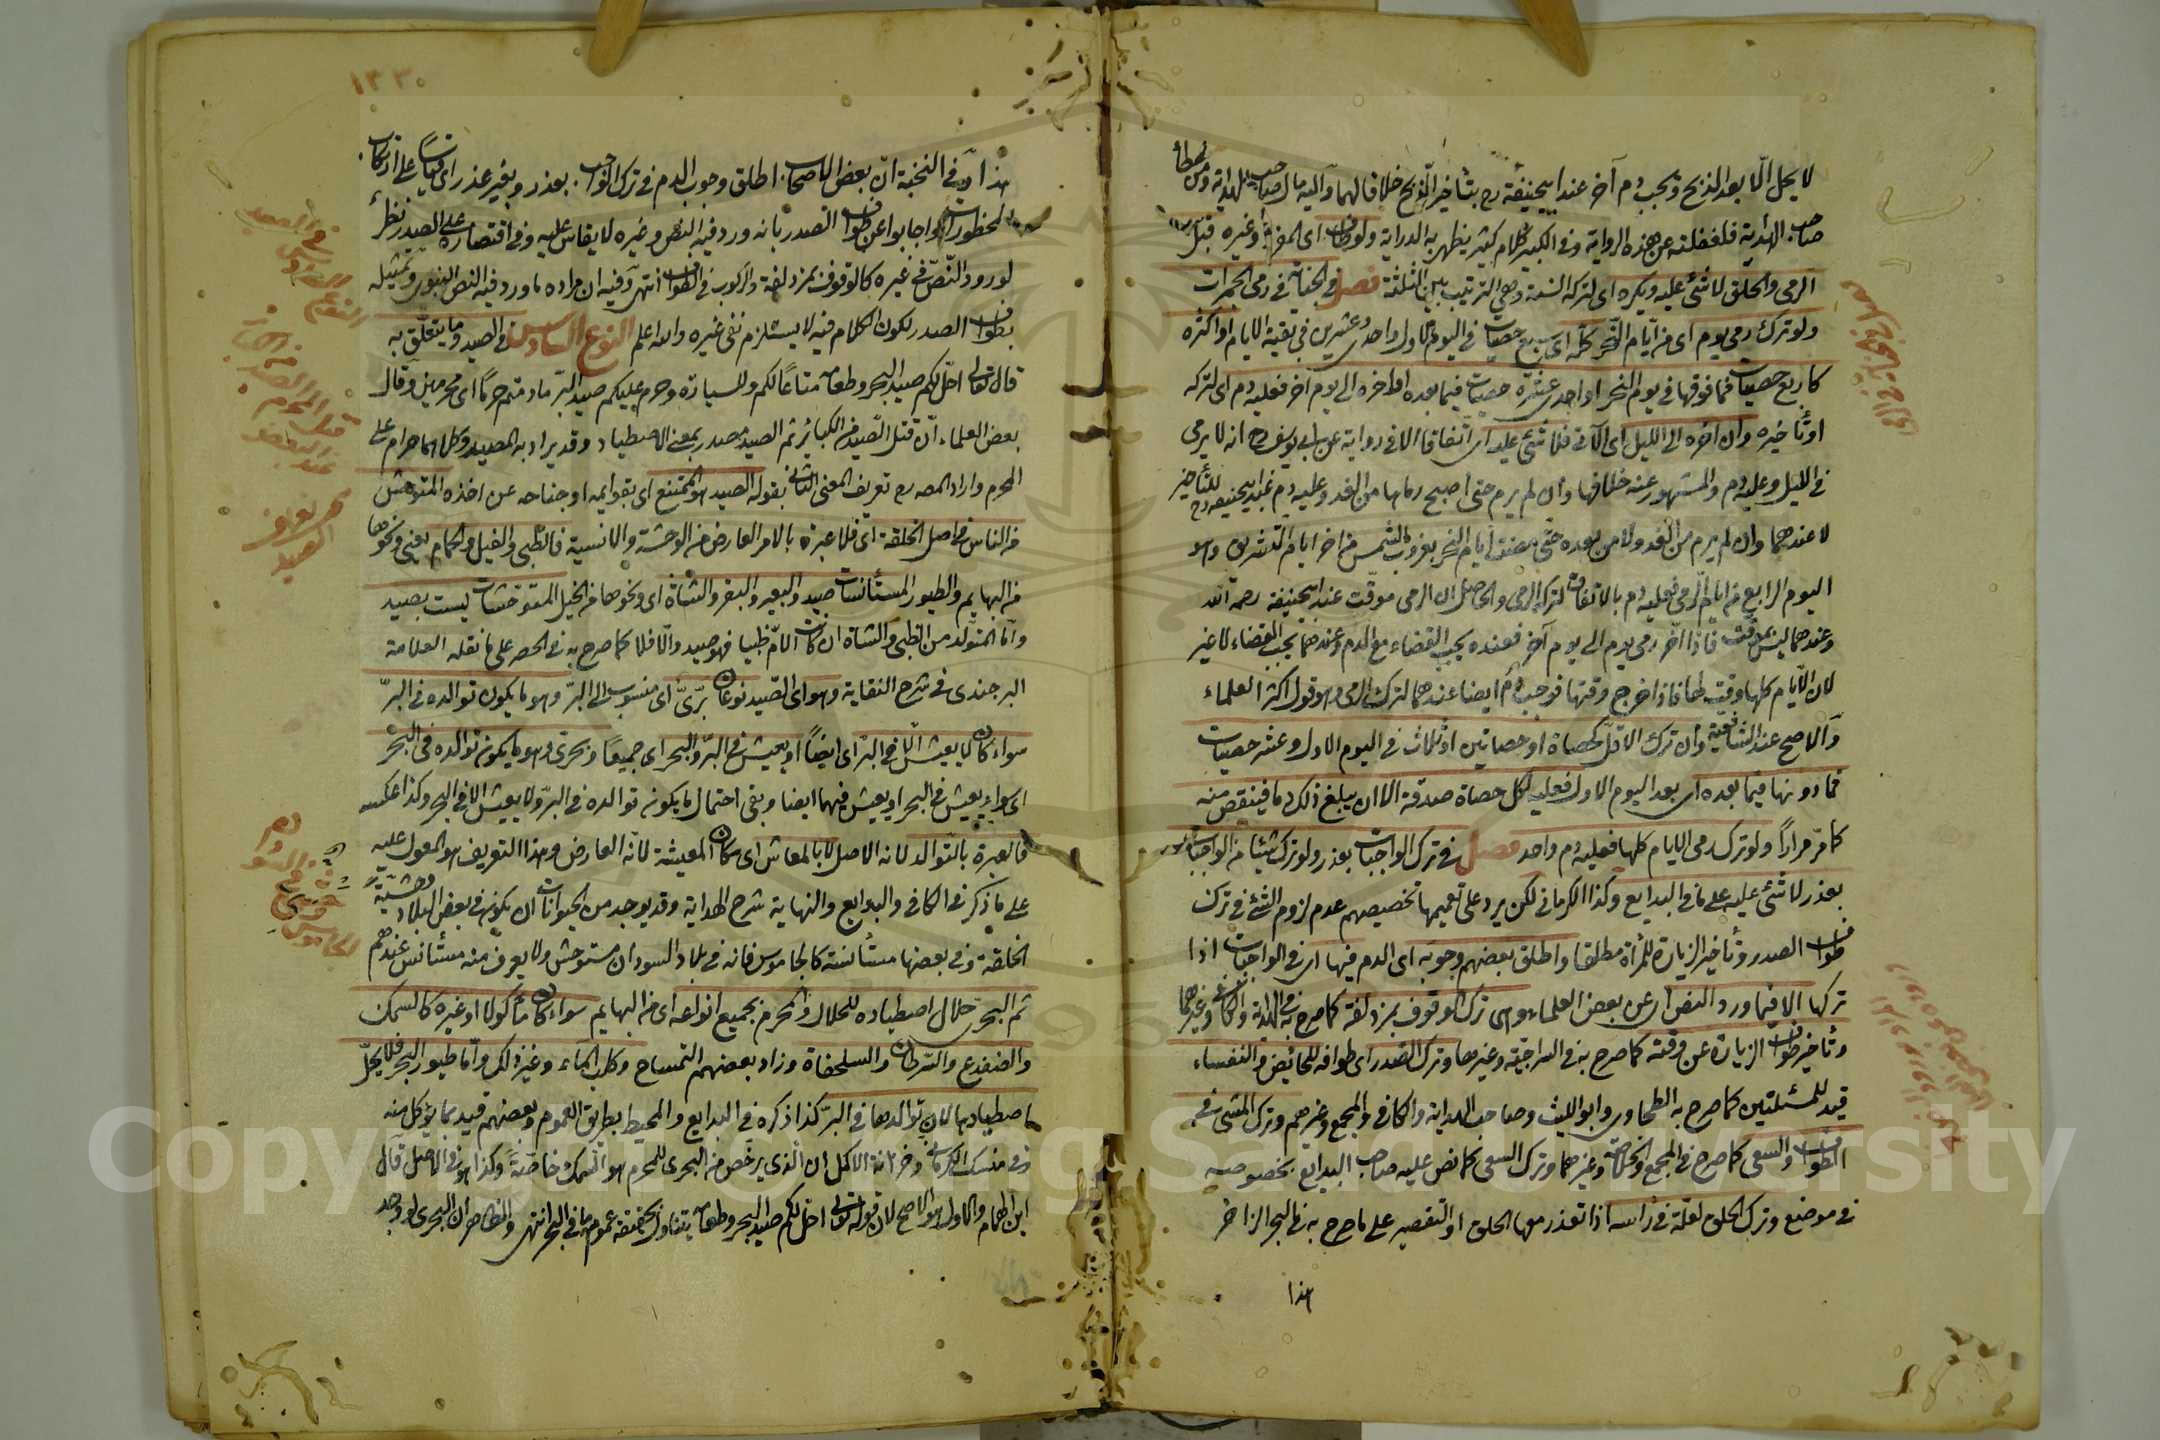 لا يحل الا بعد الذبح ويجب دم آخر عند ابيحنيفة رح بتأخير الذبح خلافا لهما واليه مال صاحب الهداية ومن خطأ
صاحب الهداية فلغفلته عن هذه الرواية وفي الكبير كلام كثير يظهر به الدراية ولو طاف اى المفرد وغيره قبل
الرمى والحلق لا شئ عليه ويكره اى لتركه السنة وهى الترتيب بين الثلثة فصل في الجناية في رمى الجمرات
ولو ترك رمى يوم اى من ايام النحر كله اى سبع حصيات في اليوم الاول واحدى وعشرين في بقية الايام او اكثره
كاربع حصيات فما فوقها في يوم النحر او احدى عشرة حصيات فيما بعده او اخره الى يوم آخر فعليه دم اى لتركه
او تأخيره وان اخره الى الليل اى الآتى فلا شئ عليه اى اتفاقا الا في رواية عن ابى يوسف رح انه لا يرمى
في الليل وعليه دم والمشهور عنه خلافها وان لم يرم حتى اصبح رماها من الغد وعليه دم عند ابيحنيفة رح للتأخير
لا عندهما وان لم يرم من الغد ولا من بعده حتى مضت ايام النحر بغروب الشمس من اخر ايام التشريق وهو
اليوم الرابع من ايام الرمى فعليه دم بالاتفاق لتركه الرمى والحاصل ان الرمى موقت عند ابيحنيفة رحمه الله
وعندهما ليس بموقت فاذا اخر رمى يوم الى يوم آخر فعنده يجب القضاء مع الدم وعندهما يجب القضاء لا غير
لان الايام كلها وقت لها فاذا خرج وقتها فوجب دم ايضا عندهما لترك الرمى وهو قول اكثر العلماء
والاصح عند الشافعية وان ترك الاقل كحصاة او حصاتين او ثلاث في اليوم الاول وعشر حصيات
فما دونها فيما بعده اى بعد اليوم الاول فعليه لكل حصاة صدقة الا ان يبلغ ذلك دما فينقص منه
كما مر مرارا ولو ترك رمى الايام كلها فعليه دم واحد فصل في ترك الواجبات بعذر ولو ترك شيئا من الواجبات
بعذر لا شئ عليه على ما في البدايع وكذا الكرمانى لكن يرد على تعميمها تخصيصهم عدم لزوم الشئ في ترك
طواف الصدر وتأخير الزيارة للمرأة مطلقا واطلق بعضهم وجوبه اى الدم فيها اى في الواجبات اذا
تركها الا فيما ورد النص اى عن بعض العلماء وهى ترك الوقوف بمزدلفة كما صرح به في الهداية والكافى وغيرهما
وتأخير طواف الزيارة عن وقته كما صرح به في السراجية وغيرها وترك الصدر اى طوافه للحائض والنفساء
قيد للمسئلتين كما صرح به الطحاوى وابو الليث وصاحب الهداية والكافى والمجمع وغيرهم وترك المشى في
الطواف والسعى كما صرح في المجمع والخلاصة وغيرهما وترك السعى كما نص عليه صاحب البدايع بخصوصه
في موضع وترك الحلق لعلة في رأسه اذا تعذر معها الحلق او التقصير على ما صرح به في البحر الزاخر
هذا
هذا وفي النخبة ان بعض الاصحاب اطلق وجوب الدم في ترك الواجب بعذر وبغير عذر اى قياسا على ارتكاب
المحظورات واجابوا عن طواف الصدر بانه ورد فيه النص وغيره لا يقاس عليه وفي اقتصاره على الصدر نظر
لورود النص في غيره كالوقوف بمزدلفة والركوب في الطواف انتهى وفيه ان مراده ما ورد فيه النص النبوى وتمثيله
بطواف الصدر لكون الكلام فيه لا يستلزم نفى غيره والله اعلم النوع السادس في الصيد وما يتعلق به
قال تعالى احل لكم صيد البحر وطعامه متاعا لكم وللسيارة وحرم عليكم صيد البر ما دمتم حرما اى محرمين وقال
بعض العلماء ان قتل الصيد من الكبائر ثم الصيد مصدر بمعنى الاصطياد وقد يراد به المصيد وكلاهما حرام على
المحرم واراد المص رح تعريف المعنى الثانى بقوله الصيد هو الممتنع اى بقوايمه او جناحه عن اخذه المتوحش
من الناس في اصل الخلقة اى فلا عبرة بالامر العارض من الوحشة والانسية فالظبى والفيل والحمام يعنى ونحوها
من البهايم والطيور المستأنسات صيد والبعير والبقر والشاة اى ونحوها من الخيل المتوحشات ليست بصيد
واما المتولد من الظبى والشاة ان كانت الام ظبيا فهو صيد والا فلا كما صرح به في الحصر على ما نقله العلامة
البرجندى في شرح النقاية وهو اى الصيد نوعان برى اى منسوب الى البر وهو ما يكون توالده في البر
سواء كان لا يعيش الا في البر اى ايضا او يعيش في البر والبحر اى جميعا وبحرى وهو ما يكون توالده في البحر
اى سواء يعيش في البحر او يعيش فيهما ايضا وبقى احتمال ما يكون توالده في البر ولا يعيش الا في البحر وكذا عكسه
فالعبرة بالتوالد لانه الاصل لا بالمعاش اى مكان المعيشة لانه العارض وهذا التعريف هو المعول عليه
على ما ذكر في الكافى والبدايع والنهاية شرح الهداية وقد يوجد من الحيوانات ان يكون في بعض البلاد وحشية
الخلقة وفي بعضها مستأنسة كالجاموس فانه في بلاد السودان مستوحش ولا يعرف منه مستأنس عندهم
ثم البحرى حلال اصطياده للحلال والمحرم بجميع انواعه اى من البهايم سواء كان مأكولا او غيره كالسمك
والضفدع والسرطان والسلحفاة وزاد بعضهم التمساح وكلب الماء وغير ذلك واما طيور البحر فلا يحل
اصطيادها لان توالدها في البر كذا ذكره في البدايع والمحيط بطريق العموم وبعضهم قيد بما يؤكل منه
وفي منسك الكرمانى وخزانة الاكمل ان الذى يرخص من البحرى للمحرم هو السمك خاصة وكذا هو في الاصل قال
ابن الهمام والاول هو الاصح لان قوله تعالى احل لكم صيد البحر وطعامه يتناول بحقيقته عموم ما في البحر انتهى والظاهر ان البحرى لو وجد
Copyright © King Saud University